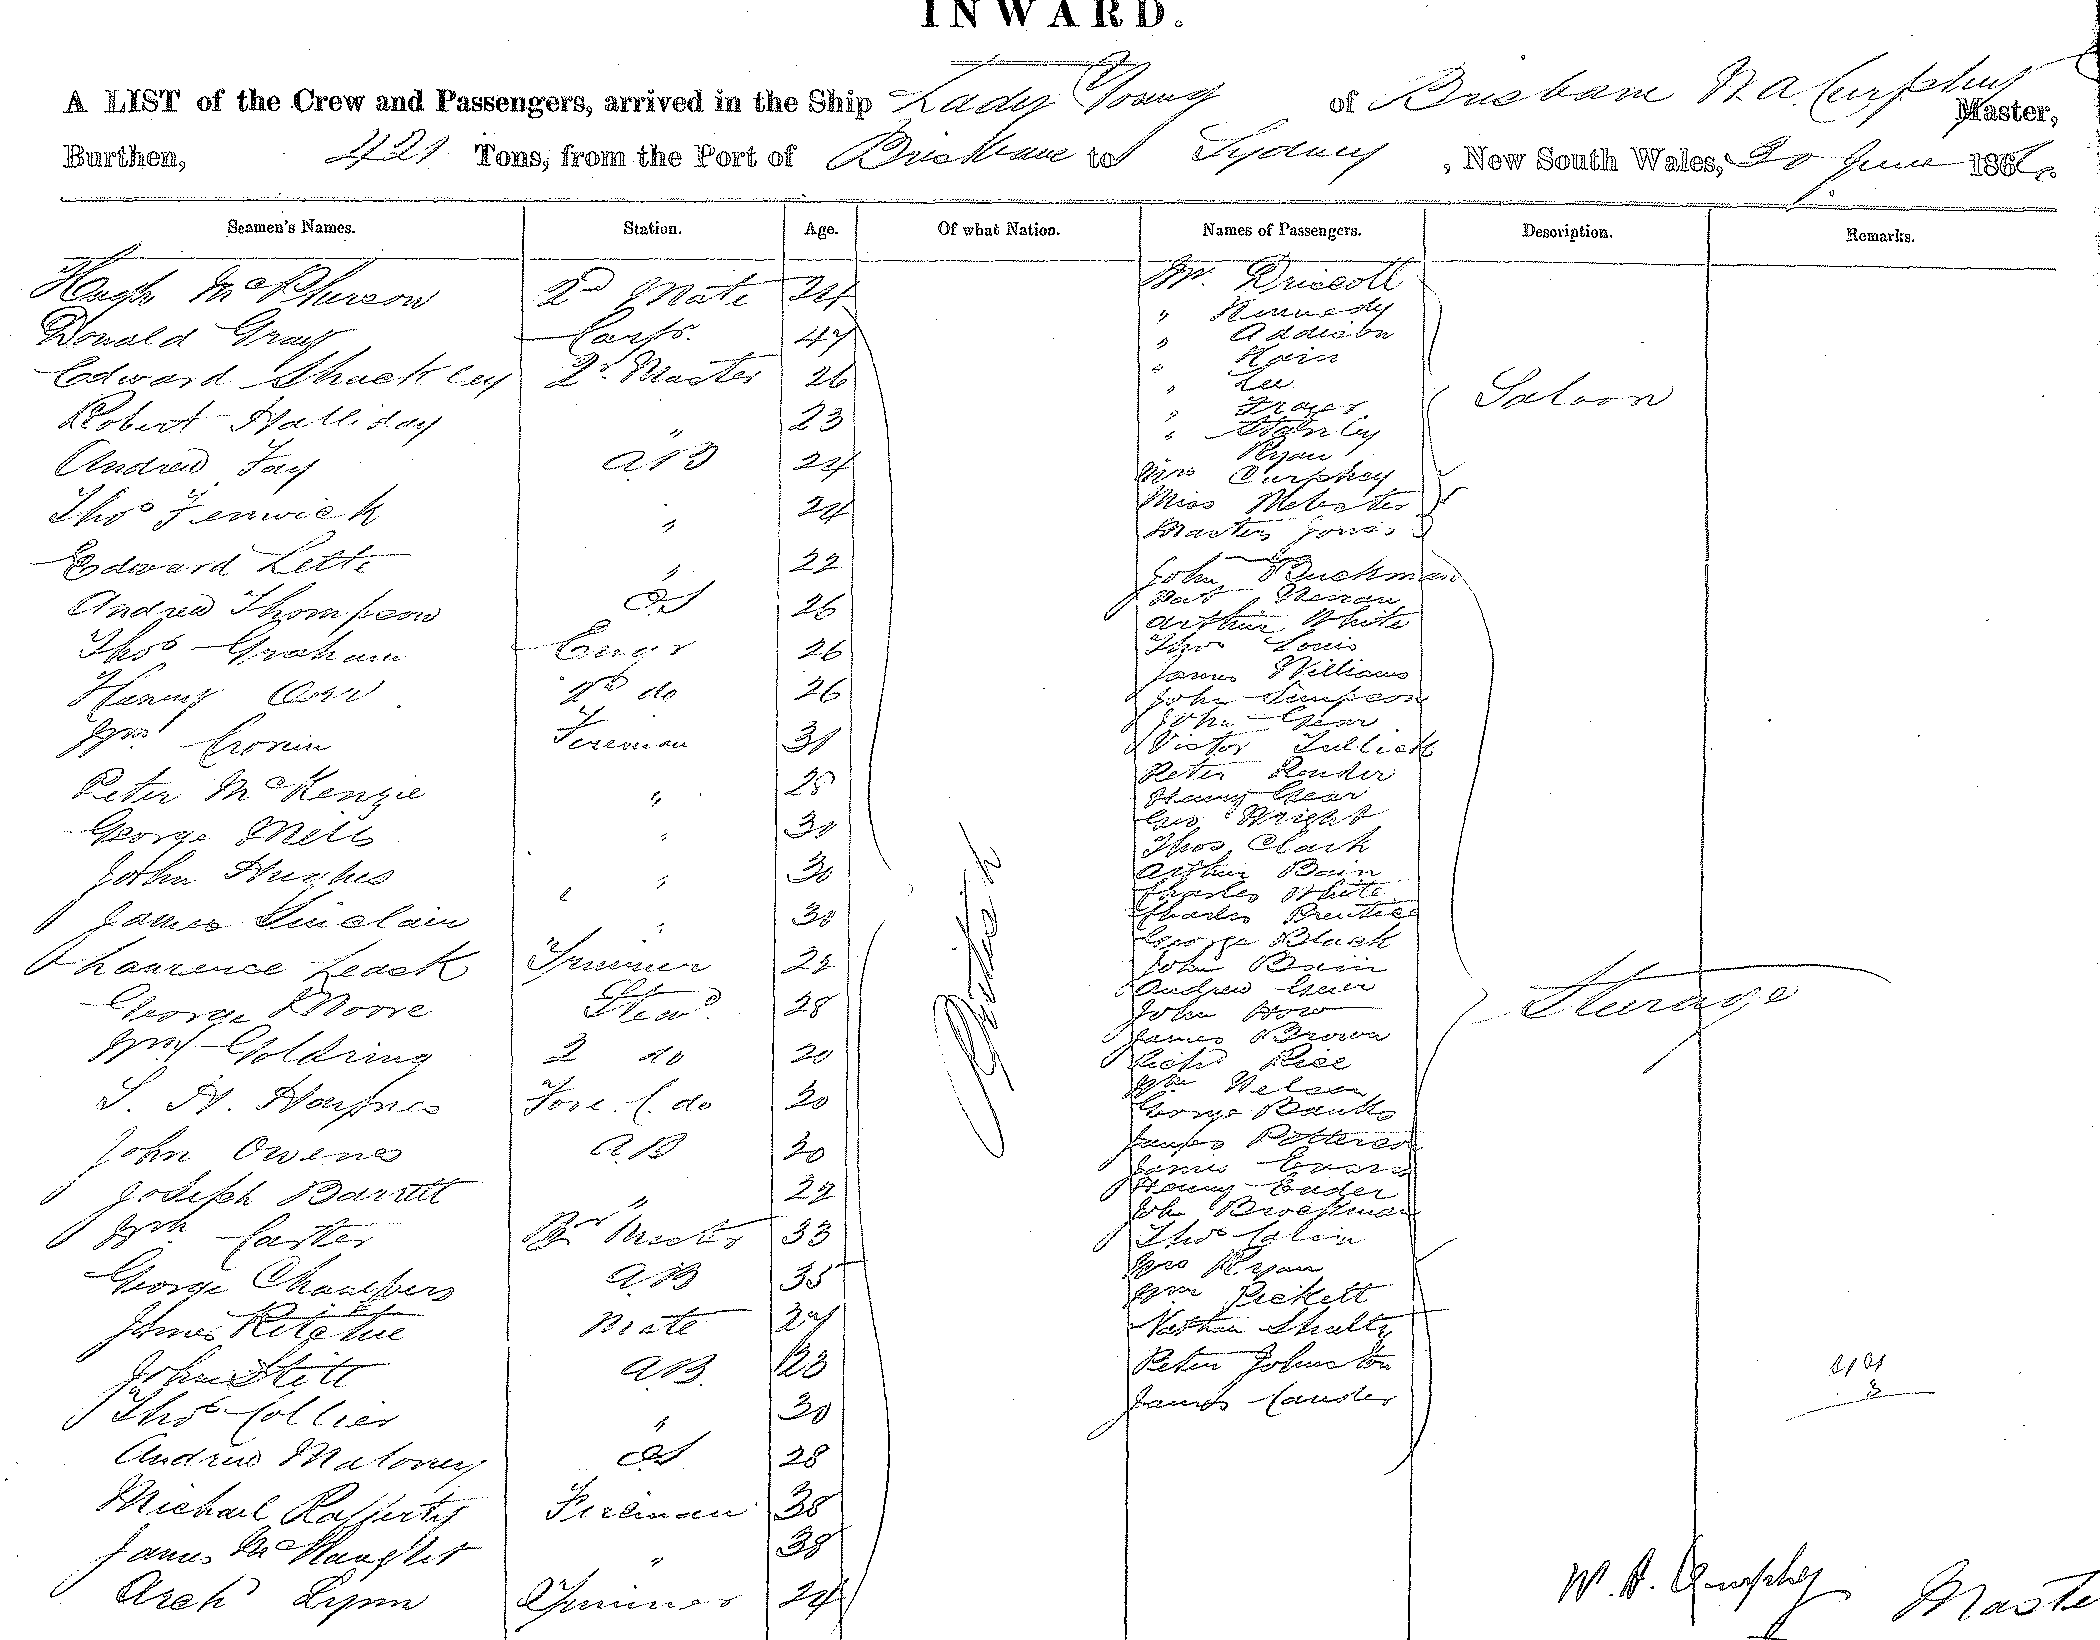 INWARD.
A LIST of the Crew and Passengers, arrived in the Ship Lady Young of Brisbane W. A. Curphey Master,
Burthen, 421 Tons, from the Port of Brisbane to Sydney, New South Wales, 20 June 186
Seamen's Names. Station. Age. Of what Nation. Names of Passengers. Description. Remarks.
Hugh McPherson 2nd Mate 24
Donald Gray Carpr. 47
Edward Shackley Qr Master 26
Robert Halliday " 23
Andrew Fay AB 24
Thos Fenwick " 24
Edward Lette " 22
Andrew Thompson OS 26
Thos Graham Engr 26
Henry Orr 2nd do 26
Wm Cronin Fireman 31
Peter McKenzie " 28
George Mills " 30
John Hughes " 30
James Sinclair " 30
Laurence Leask Trimmer 22
George Moore Stewd 28
Wm Goldring 2 do 20
S. H. Haynes Fore C. do 20
John Owens AB 20
Joseph Barrett " 22
Wm Carter 33
George Chambers AB 35
James Ritchie Mate 27
John Stitt AB 23
Thos Collier " 30
Andrew Maloney OS 28
Michael Rafferty Fireman 38
James McNaught " 38
Archd Lynn Trimmer 24
British
Mr. Driscoll
" Kennedy
" Addison
" Hain
" Lee
" Frazer
" Stanley
Ryan
Mrs Curphey
Miss Webster
Master Jones
Saloon
John Buckman
Arthur White
Thos Louis
James Williams
John Simpson
John Gear
Victor
Peter
Henry Gear
Geo Wright
Thos Clark
Arthur Bain
Charles White
Charles Prentice
George Black
John Bain
Andrew
John How
James Brown
Richd Rice
Wm Nelson
George Banks
James Potterson
James Evans
Henry
John Brockman
Thos
Mrs Ryan
Wm Pickett
Nathan Shultz
Peter Johnston
James
Sturage
W. A. Curphey Maste